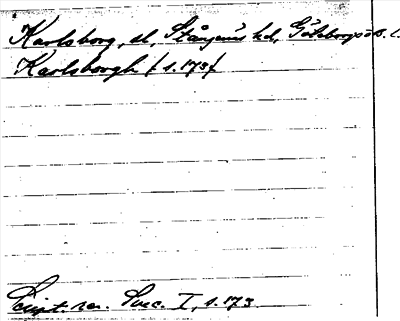 Karlsborg, sl, Stångenäs hd, Göteborgs o B. L.
Karlsborgh / s. 173 /
Script. rer. Svec. I, s. 173